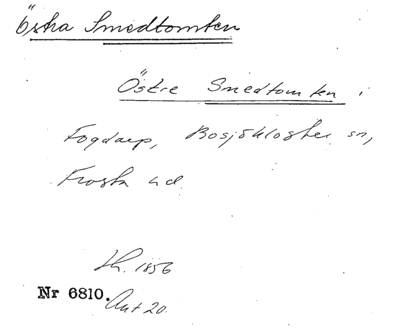 Östra Smedtomten
Östre Smedtomten i
Fogdarp, Bosjöklosters sn,
Frosta hd
Lh. 1856
Nr 6810. Akt 20.